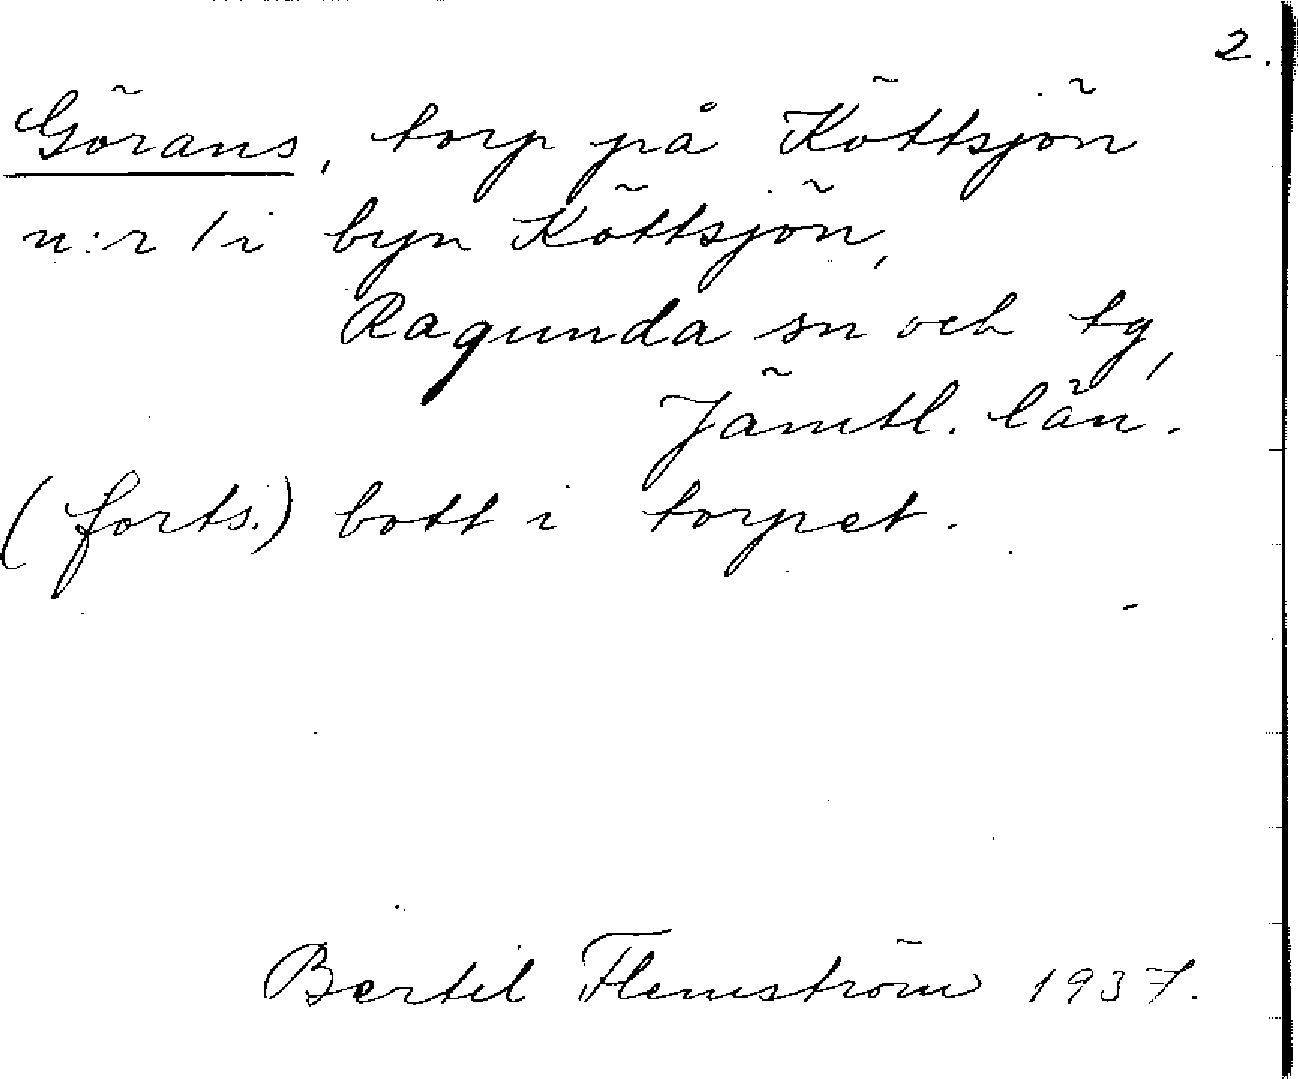 2.
Görans, torp på Köttsjön
n:r 1 i byn Köttsjön,
Ragunda sn och tg,
Jämtl. län.
(forts.) bott i torpet.
Bertil Flemström 1937.